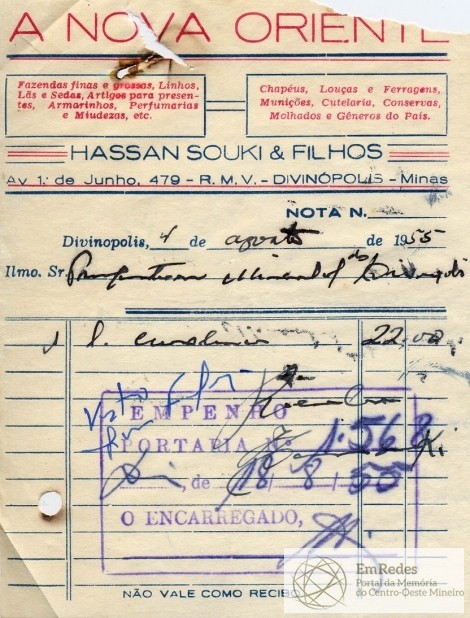 A NOVA ORIENTE
Fazendas finas e grossas, Linhos,
Lãs e Sedas, Artigos para presen-
tes, Armarinhos, Perfumarias
e Miudezas, etc.
Chapéus, Louças e Ferragens,
Munições, Cutelaria, Conservas,
Molhados e Gêneros do País.
HASSAN SOUKI & FILHOS
Av 1.º de Junho, 479 - R. M. V. - DIVINÓPOLIS - Minas
NOTA N.
Divinopolis, 4 de agosto de 1955
Ilmo. Sr. Municipal de Divinopolis
1 l. 22,00
Visto
EMPENHO
PORTARIA Nº 1.568
, de 18/8/55
O ENCARREGADO,
NÃO VALE COMO RECIBO
EmRedes
Portal da Memória
do Centro-Oeste Mineiro